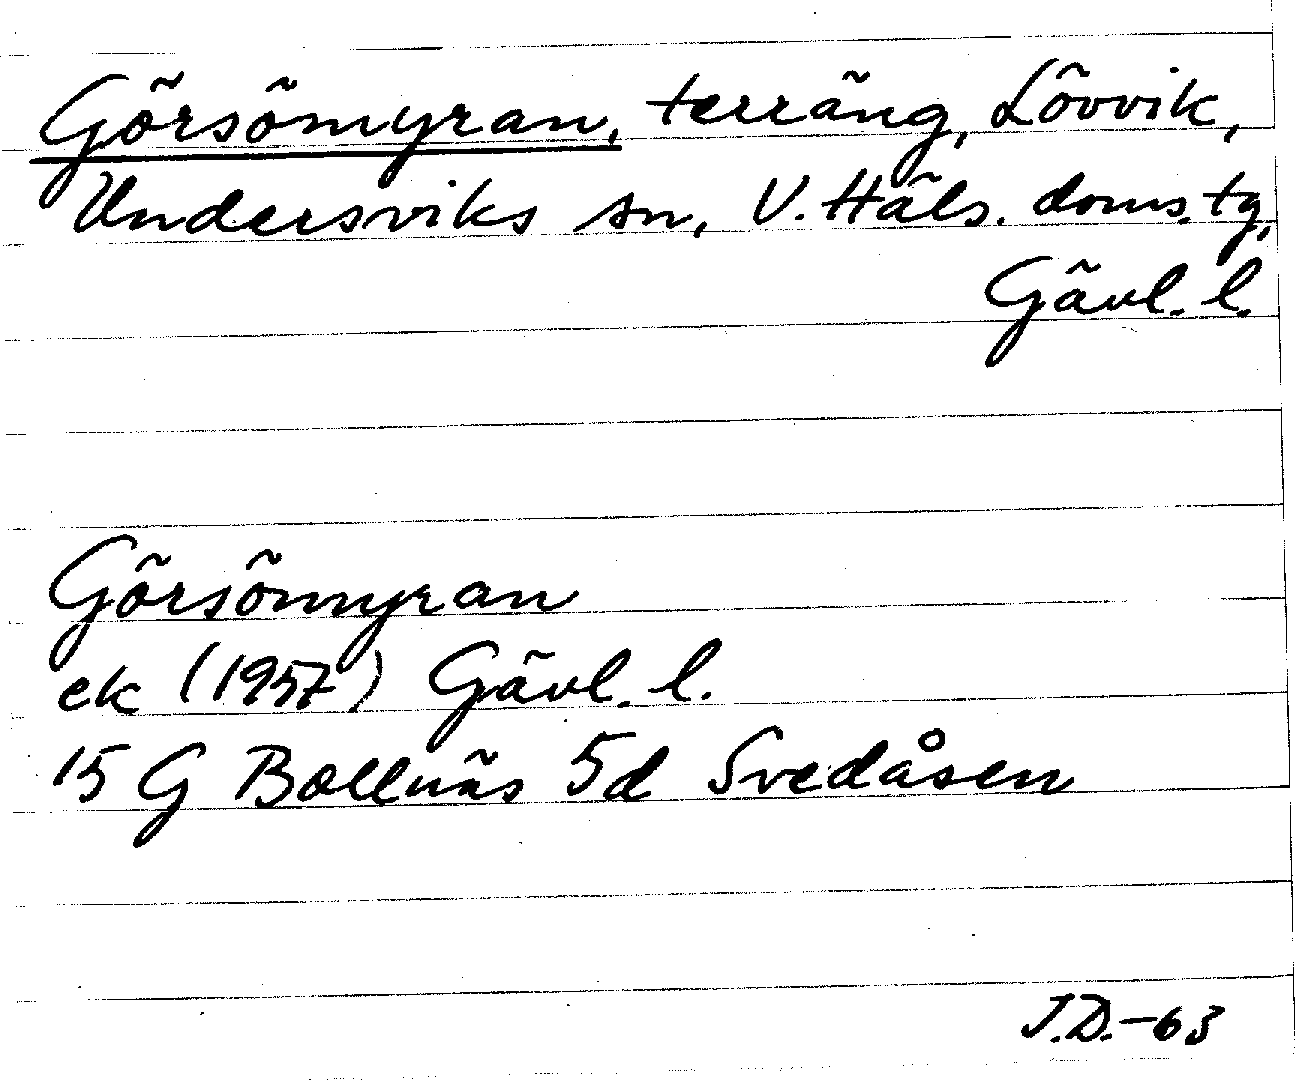 Görsömyran, terräng, Lövvik,
Undersviks sn, V. Häls. doms. tg,
Gävl. l.
Görsömyran
ek (1957) Gävl. l.
15 G Bollnäs 5d Svedåsen
J.D.-63